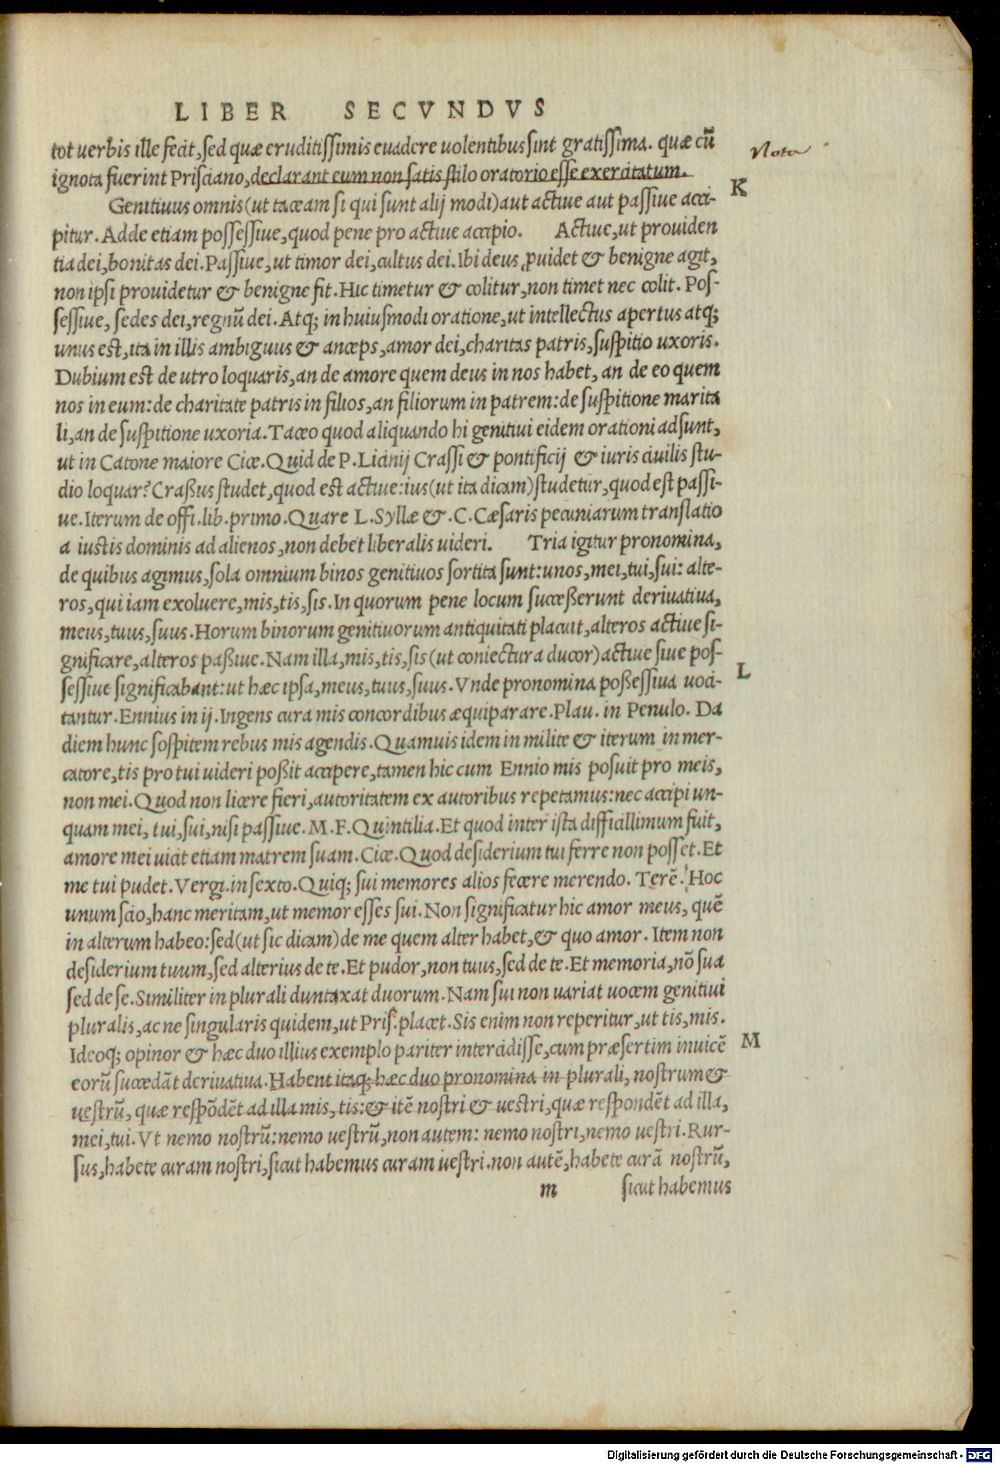 LIBER SECVNDVS
tot uerbis ille fecit, sed quæ eruditissimis euadere uolentibus sint gratissima. quæ cū
Nota
ignota fuerint Prisciano, declarant eum non satis stilo oratorio esse exercitatum.
K
Genitiuus omnis (ut taceam si qui sunt alij modi) aut actiue aut passiue acci-
pitur. Adde etiam possessiue, quod pene pro actiue accipio. Actiue, ut prouiden
tia dei, bonitas dei. Passiue, ut timor dei, cultus dei. Ibi deus ꝓuidet & benigne agit,
non ipsi prouidetur & benigne fit. Hic timetur & colitur, non timet nec colit. Pos-
sessiue, sedes dei, regnū dei. Atq; in huiusmodi oratione, ut intellectus apertus atq;
unus est, ita in illis ambiguus & anceps, amor dei, charitas patris, suspitio uxoris.
Dubium est de utro loquaris, an de amore quem deus in nos habet, an de eo quem
nos in eum: de charitate patris in filios, an filiorum in patrem: de suspitione marita
li, an de suspitione uxoria. Taceo quod aliquando hi genitiui eidem orationi adsunt,
ut in Catone maiore Cice. Quid de P. Licinij Crassi & pontificij & iuris ciuilis stu-
dio loquar? Craßus studet, quod est actiue: ius (ut ita dicam) studetur, quod est passi-
ue. Iterum de offi. lib. primo. Quare L. Syllæ &. C. Cæsaris pecuniarum translatio
a iustis dominis ad alienos, non debet liberalis uideri. Tria igitur pronomina,
de quibus agimus, sola omnium binos genitiuos sortita sunt: unos, mei, tui, sui: alte-
ros, qui iam exoluere, mis, tis, sis. In quorum pene locum succeßerunt deriuatiua,
meus, tuus, suus. Horum binorum genitiuorum antiquitati placuit, alteros actiue si-
gnificare, alteros paßiue. Nam illa, mis, tis, sis (ut coniectura ducor) actiue siue pos-
L
sessiue significabant: ut hæc ipsa, meus, tuus, suus. Vnde pronomina poßessiua uoci-
tantur. Ennius in ij. Ingens cura mis concordibus æquiparare. Plau. in Penulo. Da
diem hunc sospitem rebus mis agendis. Quamuis idem in milite & iterum in mer-
catore, tis pro tui uideri poßit accipere, tamen hic cum Ennio mis posuit pro meis,
non mei. Quod non licere fieri, autoritatem ex autoribus repetamus: nec accipi un-
quam mei, tui, sui, nisi passiue. M. F. Quintilia. Et quod inter ista difficillimum fuit,
amore mei uicit etiam matrem suam. Cice. Quod desiderium tui ferre non posset. Et
me tui pudet. Vergi. in sexto. Quiq; sui memores alios fecere merendo. Terē. Hoc
unum scio, hanc meritam, ut memor esses sui. Non significatur hic amor meus, quē
in alterum habeo: sed (ut sic dicam) de me quem alter habet, & quo amor. Item non
desiderium tuum, sed alterius de te. Et pudor, non tuus, sed de te. Et memoria, nō sua
sed de se. Similiter in plurali duntaxat duorum. Nam sui non uariat uocem genitiui
pluralis, ac ne singularis quidem, ut Pris. placet. Sis enim non reperitur, ut tis, mis.
M
Ideoq; opinor & hæc duo illius exemplo pariter intercidisse, cum præsertim inuicē
eorū succedāt deriuatiua. Habent itaq; hæc duo pronomina in plurali, nostrum &
uestrū, quæ respōdēt ad illa mis, tis: & itē nostri & uestri, quæ respondēt ad illa,
mei, tui. Vt nemo nostrū: nemo uestrū, non autem: nemo nostri, nemo uestri. Rur-
sus, habete curam nostri, sicut habemus curam uestri. non autē, habete curā nostrū,
m sicut habemus
Digitalisierung gefördert durch die Deutsche Forschungsgemeinschaft - DFG